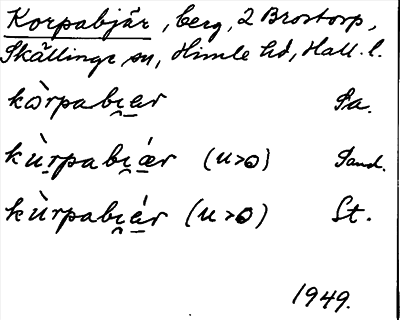 Korpabjär, berg, 2 Brostorp,
Skällinge sn, Himle hd, Hall. l.
kòrpabi̯ær Sa.
kùrpabi̯ǽr (u>o) Sand.
kùrpabi̯ár (u>o) St.
1949.